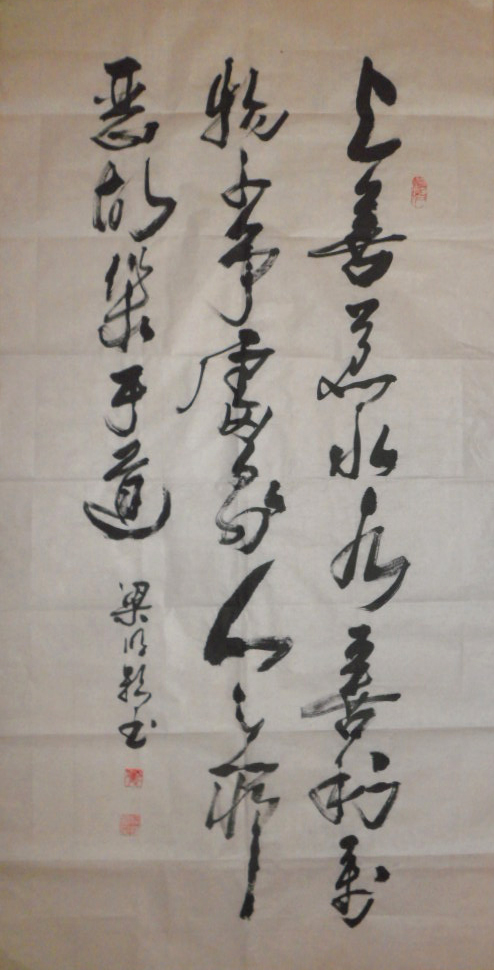 上善若水水善利萬
物不争處眾人之所
惡故幾于道
梁书